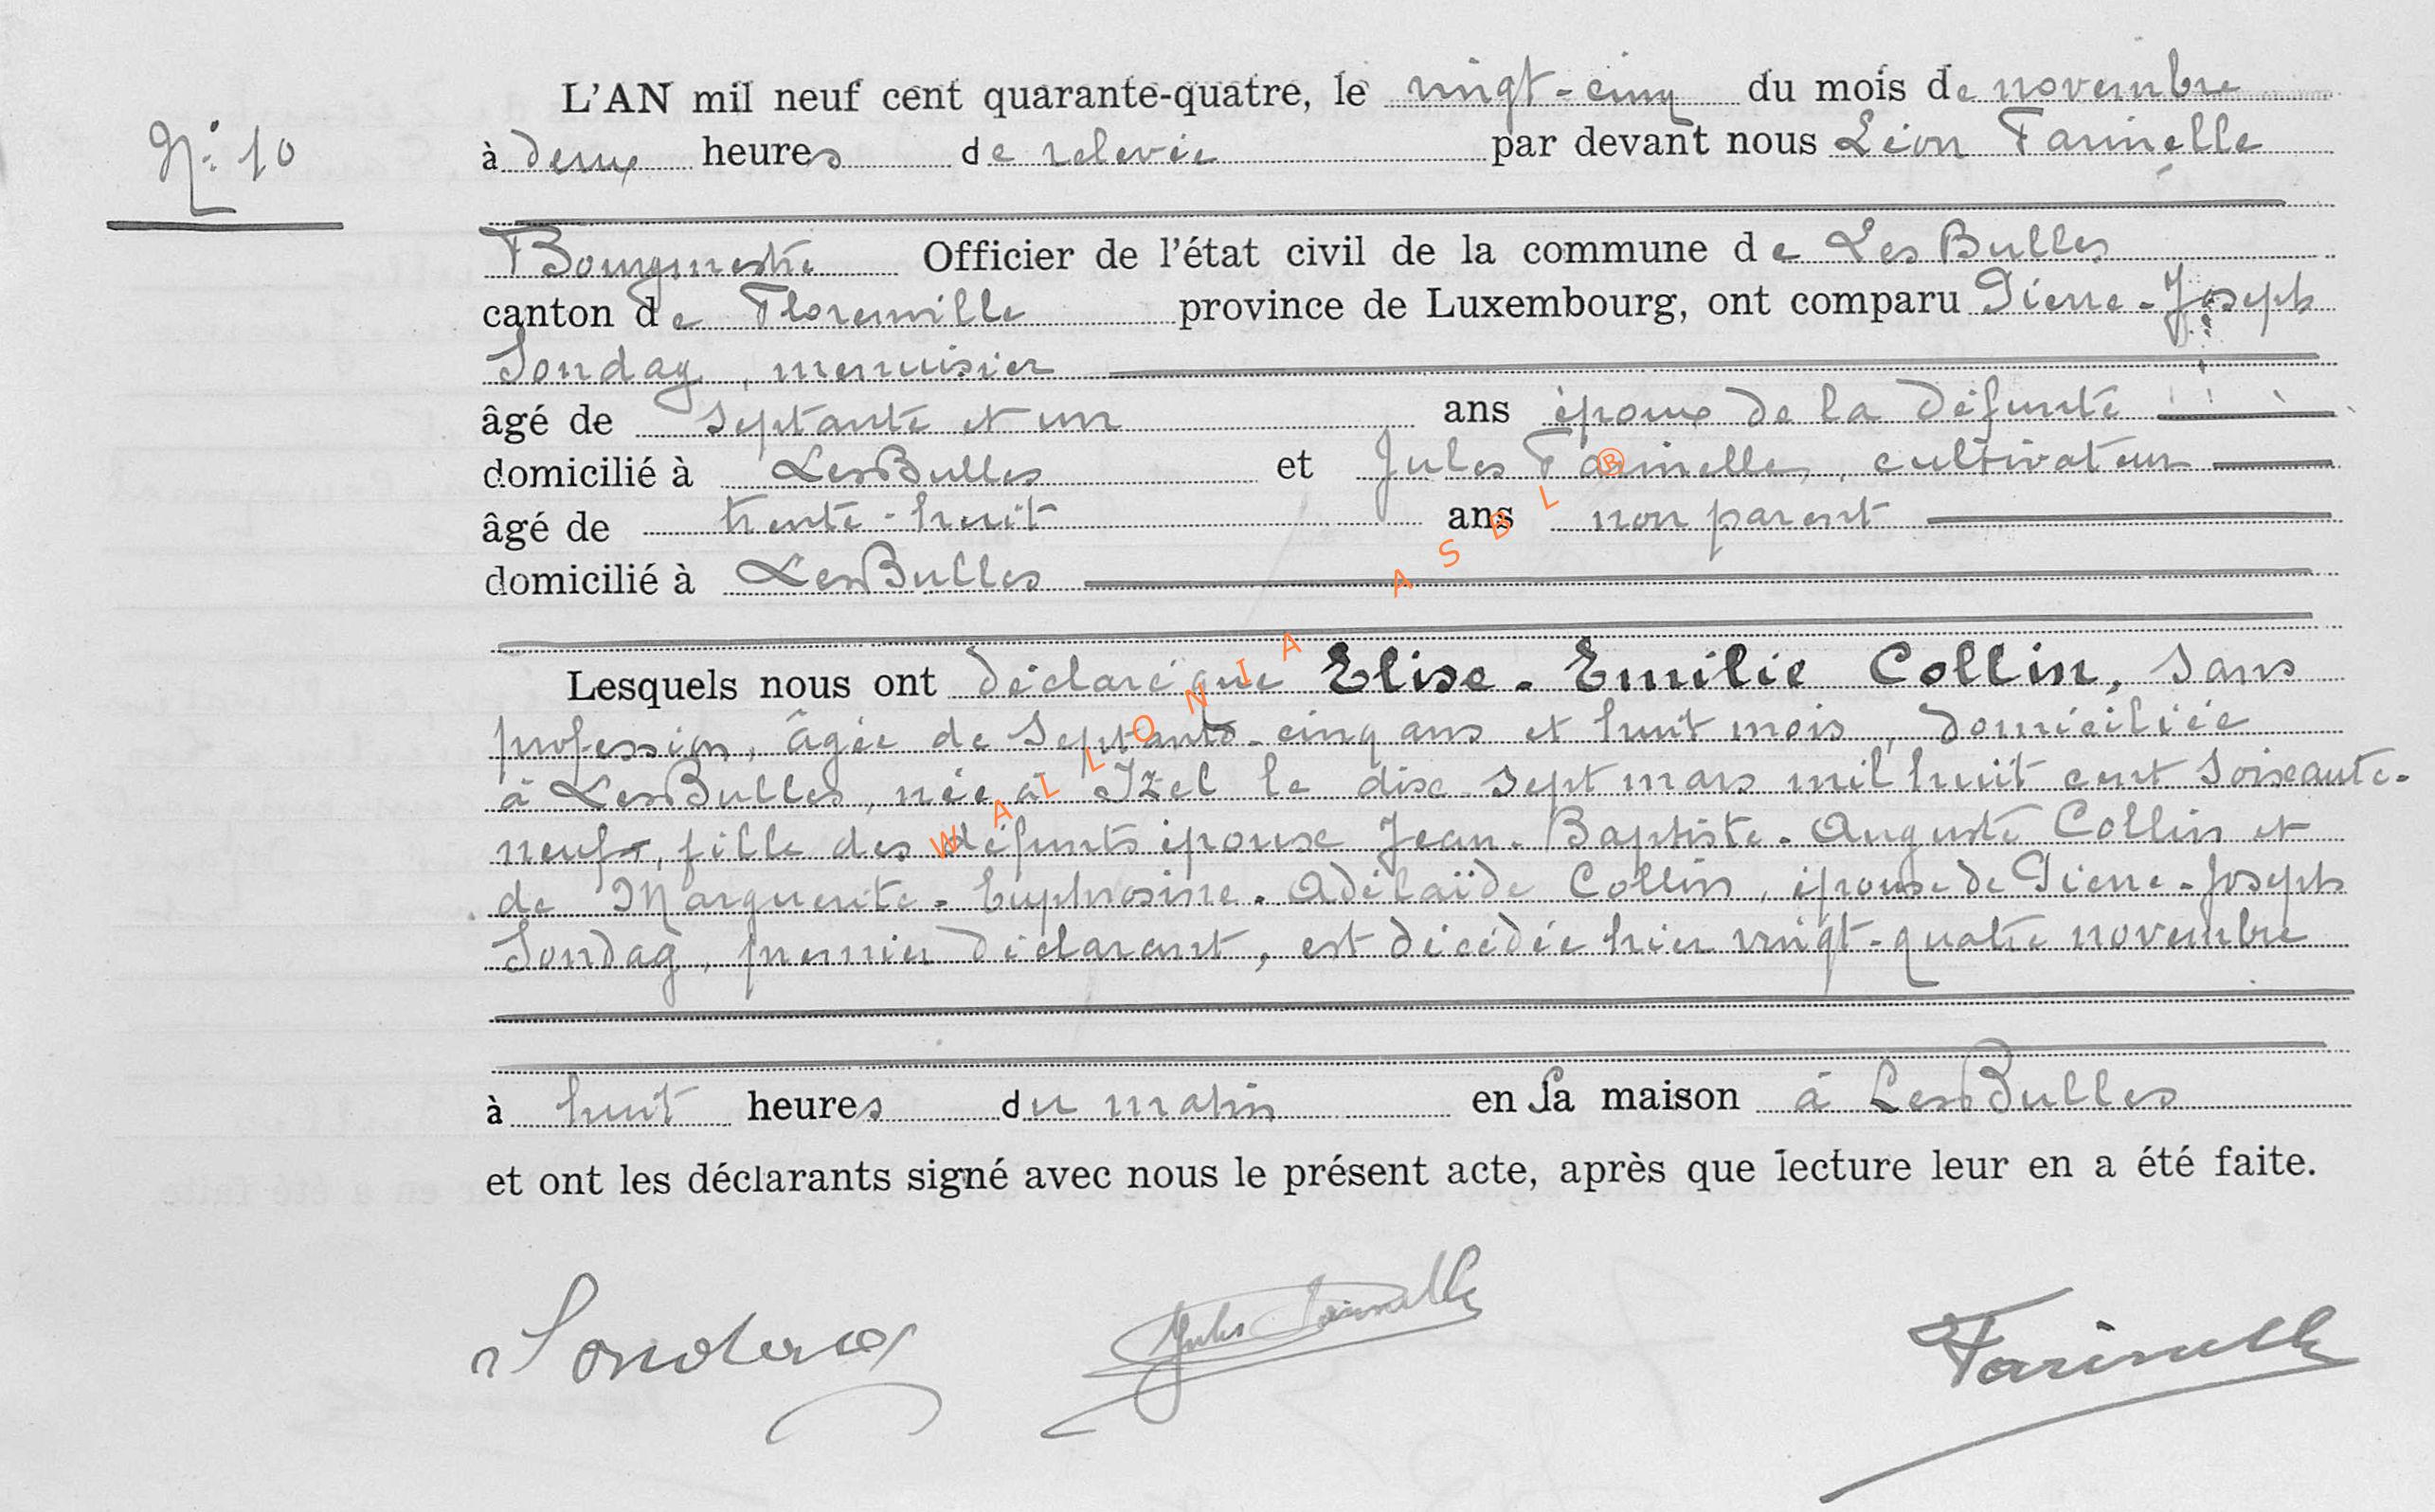 N° 10
L'AN mil neuf cent quarante-quatre, le vingt-cinq du mois de novembre
à deux heures de relevée par devant nous Léon Farinelle
Bourgmestre Officier de l'état civil de la commune de Les Bulles
canton de Florenville province de Luxembourg, ont comparu Pierre-Joseph
Sondag, menuisier
âgé de septante et un ans époux de la défunte
domicilié à Les Bulles et Jules Farinelle, cultivateur
âgé de trente-huit ans non parent
domicilié à Les Bulles
Lesquels nous ont déclaré que Elise-Emilie Collin, sans
profession, âgée de septante-cinq ans et huit mois, domiciliée
à Les Bulles, née à Izel le dix-sept mars mil huit cent soixante-
neuf, fille des défunts époux Jean-Baptiste-Auguste Collin et
de Marguerite-Euphrosine-Adélaïde Collin, épouse de Pierre-Joseph
Sondag, premier déclarant, est décédée hier vingt-quatre novembre
à huit heures du matin en sa maison à Les Bulles
et ont les déclarants signé avec nous le présent acte, après que lecture leur en a été faite.
Sondag Jules Farinelle Farinelle
WALLONIA ASBL ®